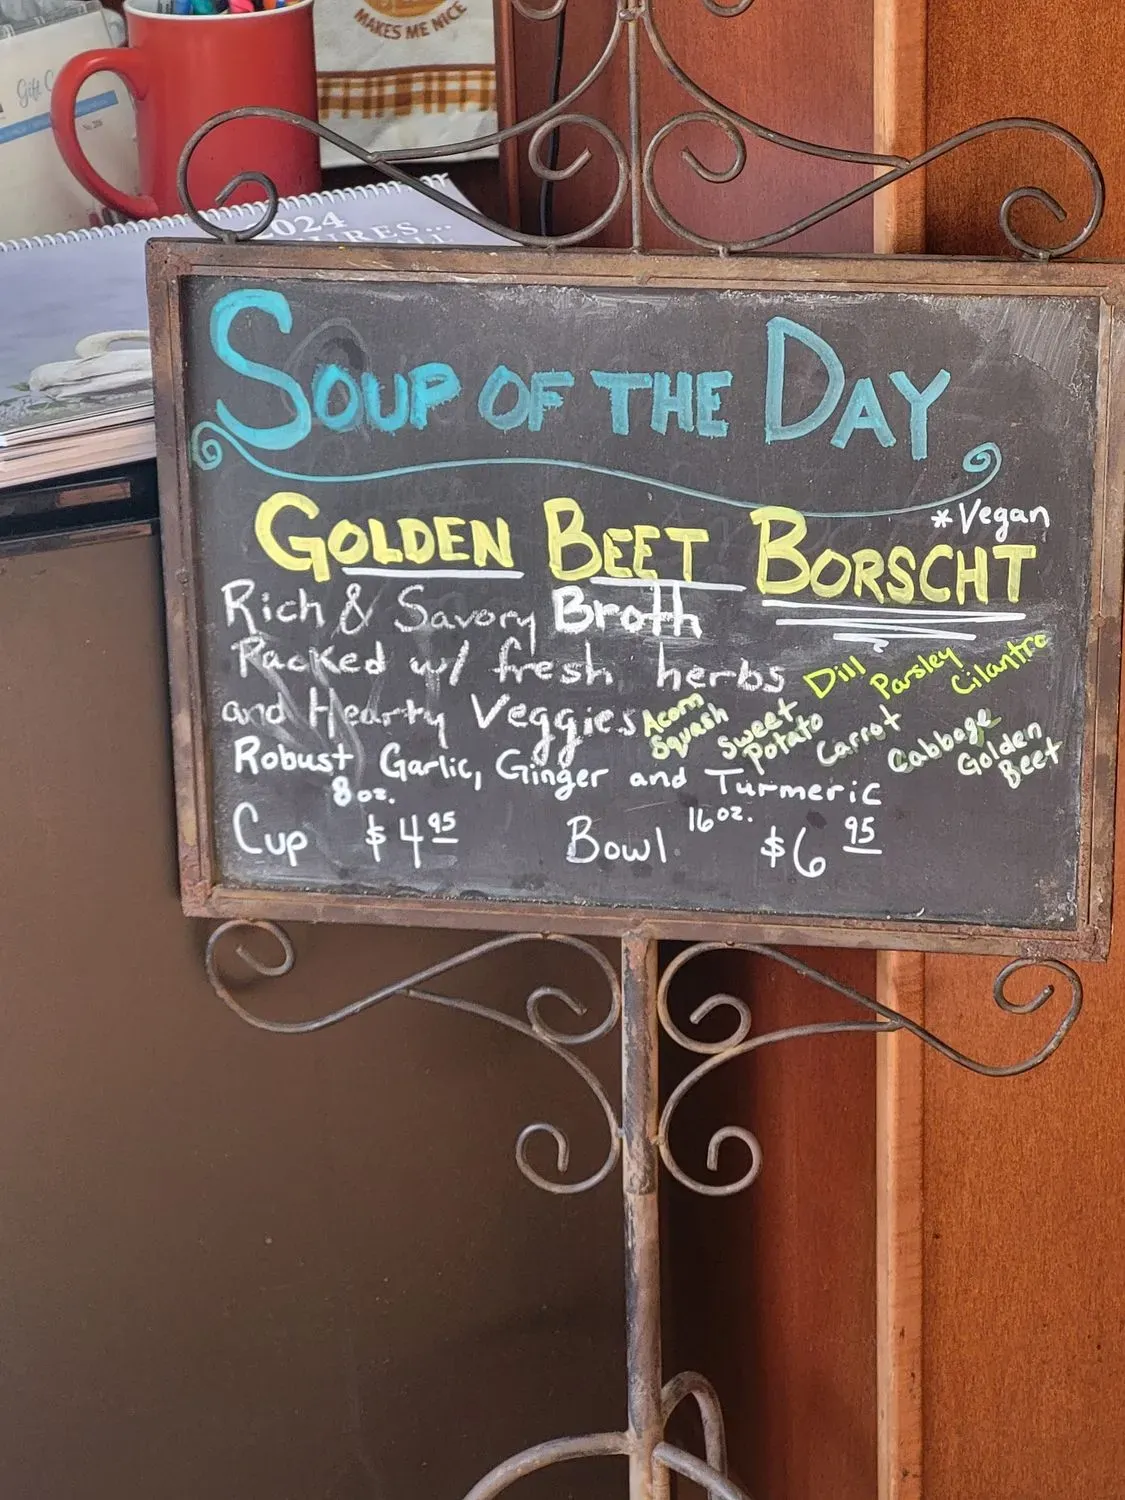 MAKES ME NICE
Gift C
No. 208
2024
SOUP OF THE DAY
*Vegan
GOLDEN BEET BORSCHT
Rich & Savory Broth
Packed w/ fresh herbs Dill Parsley Cilantro
and Hearty Veggies Acorn Squash Sweet Potato Carrot Cabbage Golden Beet
Robust Garlic, Ginger and Turmeric
8 oz. 16 oz.
Cup $4 95 Bowl $6 95